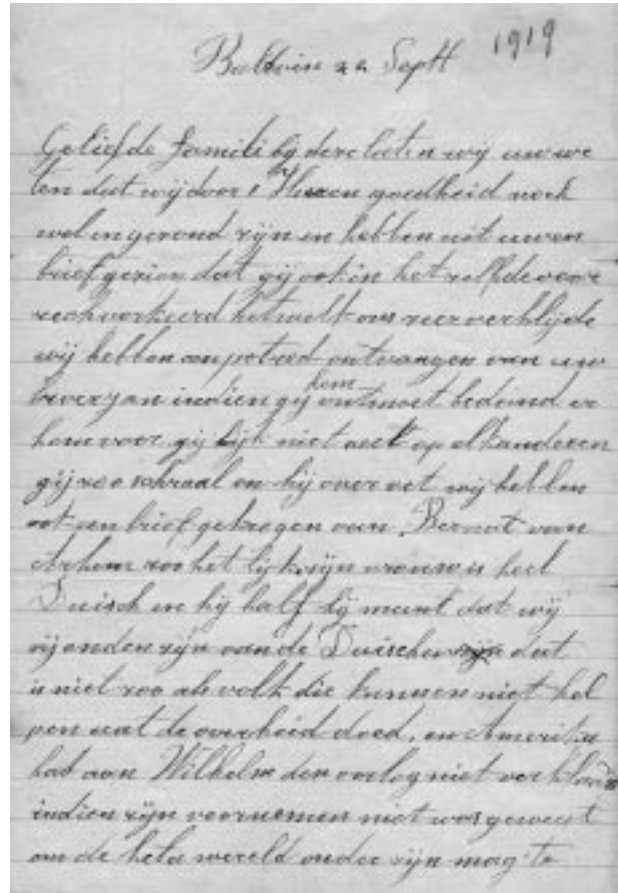 1919
Baldwin 22 Sept
Geliefde familie bij deze laten wij uw we
ten dat wij door s Heeren goedheid noch
wel en gezond zijn en hebben uit uwen
brief gezien dat gij ook in het zelfde voor
recht verkeerd hetwelk ons zeer verblijde
wij hebben een potred ontvangen van uw
broer jan indien gij hem ontmoet bedand er
hem voor gij lijk niet veel op elkanderen
gij zoo schraal en hij over vet wij hebben
ook een brief gekregen van Bernat van
Arkem zoo het lijk zijn vrouw is heel
Duisch en hij half hij meent dat wij
vijanden zijn van de Duischers dat
is niet zoo als volk die kunnen niet hel
pen wat de overheid doed, en Amerika
had aan Wilhelm den oorlog niet verklaard
indien zijn voornemen niet was geweest
om de hele wereld onder zijn mag te